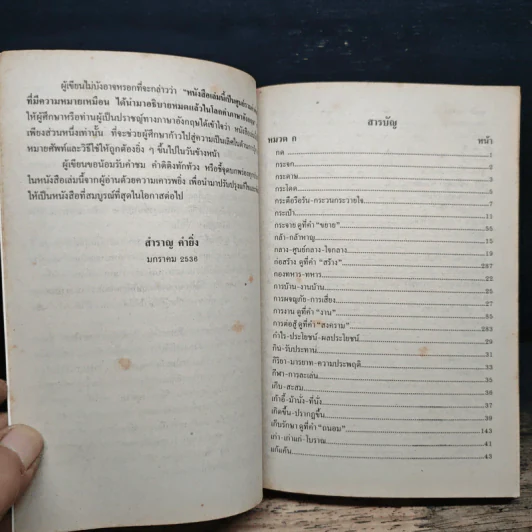 ผู้เขียนไม่บังอาจหรอกที่จะกล่าวว่า "หนังสือเล่มนี้เป็นศูนย์รวม
ที่มีความหมายเหมือน ได้นำมาอธิบายหมดแล้วในโลกคำภาษาอังกฤษ"
ให้ผู้ศึกษาหรือท่านผู้เป็นปราชญ์ทางภาษาอังกฤษได้เข้าใจว่า หนังสือเล่มนี้
เพียงส่วนหนึ่งเท่านั้น ที่จะช่วยผู้ศึกษาก้าวไปสู่ความเป็นเลิศในด้าน
หมายศัพท์และวิธีใช้ให้ถูกต้องยิ่ง ๆ ขึ้นไปในวันข้างหน้า
ผู้เขียนขอน้อมรับคำชม คำติติงทักท้วง หรือชี้จุดบกพร่อง
ในหนังสือเล่มนี้จากผู้อ่านด้วยความเคารพยิ่ง เพื่อนำมาปรับปรุงแก้ไข
ให้เป็นหนังสือที่สมบูรณ์ที่สุดในโอกาสต่อไป
สำราญ คำยิ่ง
มกราคม 2536
สารบัญ
หมวด ก หน้า
กด 1
กระจก 3
กระดาษ 5
กระโดด 7
กระตือรือร้น-กระวนกระวายใจ 9
กระเป๋า 11
กระจาย ดูที่คำ "ขยาย" 55
กล้า-กล้าหาญ 15
กลาง-ศูนย์กลาง-ใจกลาง 17
ก่อสร้าง ดูที่คำ "สร้าง" 287
กองทหาร-ทหาร 21
การบ้าน-งานบ้าน 22
การผจญภัย-การเสี่ยง 25
การงาน ดูที่คำ "งาน"
การต่อสู้ ดูที่คำ "สงคราม" 283
กำไร-ประโยชน์-ผลประโยชน์ 29
กิน-รับประทาน 31
กิริยา-มารยาท-ความประพฤติ 33
กีฬา-การละเล่น 35
เก็บ-สะสม
เก้าอี้-ม้านั่ง-ที่นั่ง 37
เกิดขึ้น-ปรากฏขึ้น 39
เก็บรักษา ดูที่คำ "ถนอม" 143
เก่า-เก่าแก่-โบราณ 41
แก้แค้น 43